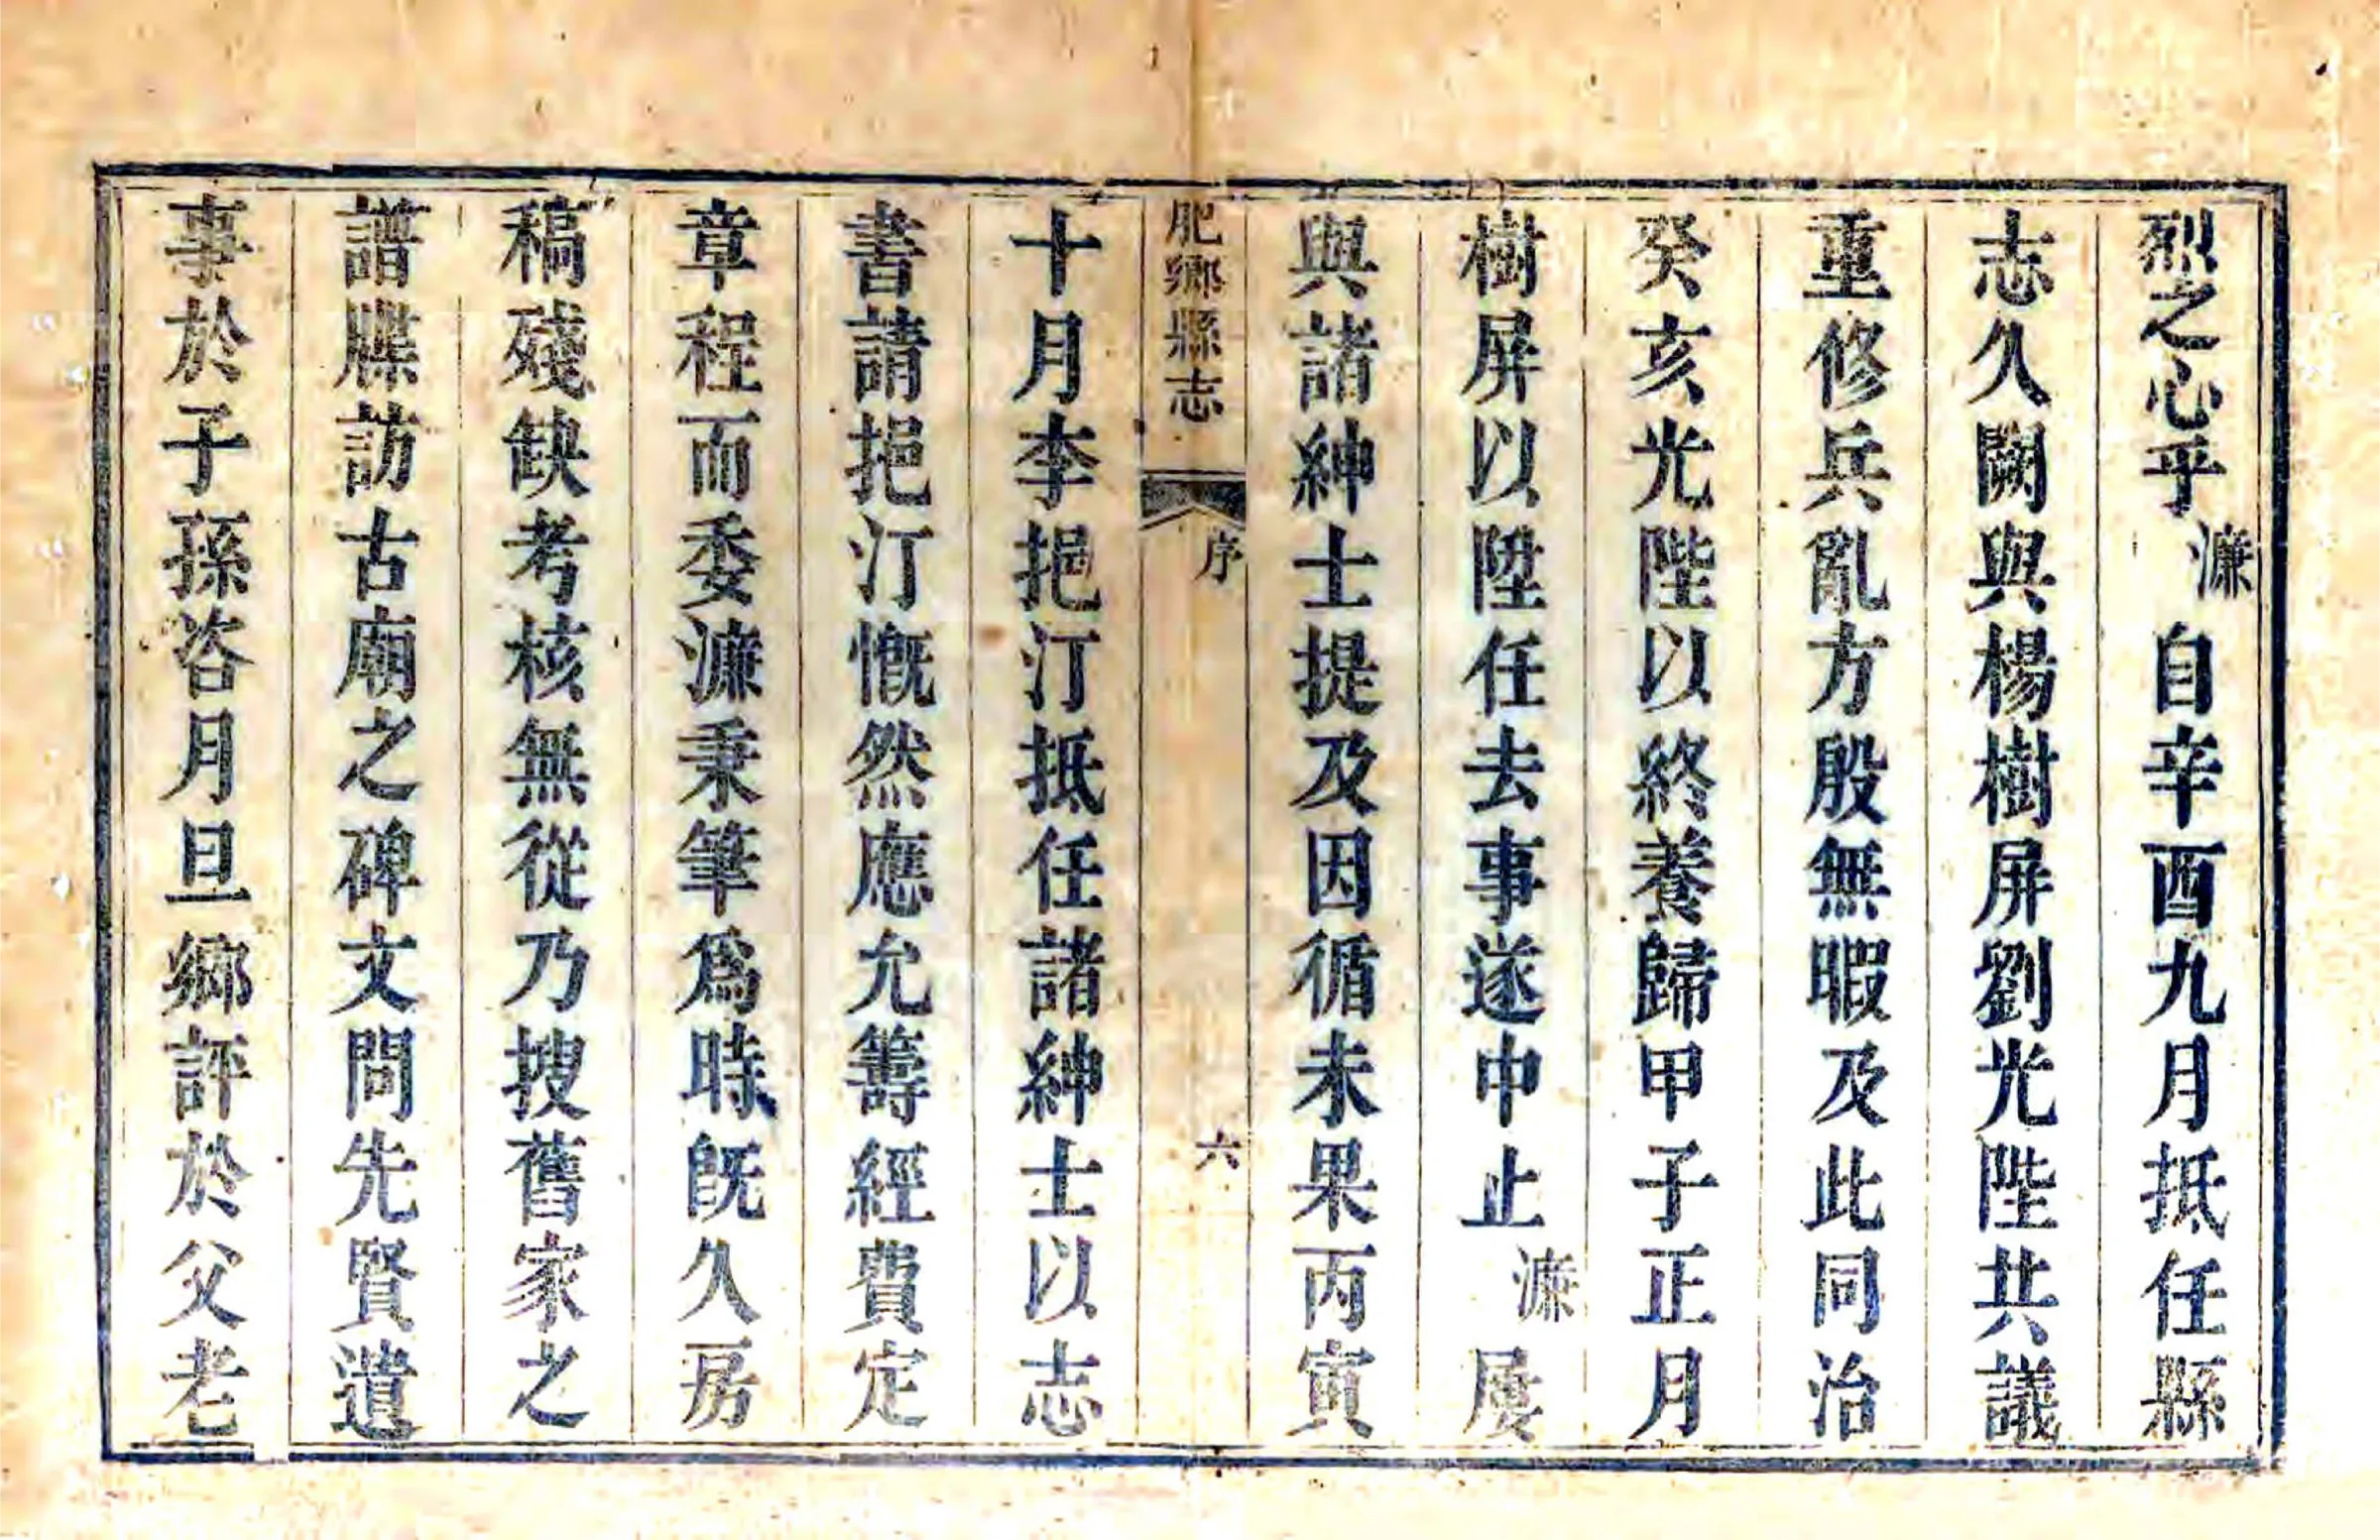 烈之心乎濂自辛酉九月抵任縣
志久闕與楊樹屏劉光陛共議
重修兵亂方殷無暇及此同治
癸亥光陛以終養歸甲子正月
樹屏以陞任去事遂中止濂屢
與諸紳士提及因循未果丙寅
肥鄉縣志
序
六
十月李挹汀抵任諸紳士以志
書請挹汀慨然應允籌經費定
章程而委濂秉筆為時旣久房
稿殘缺考核無從乃搜舊家之
譜牒訪古廟之碑文問先賢遺
事於子孫咨月旦鄉評於父老